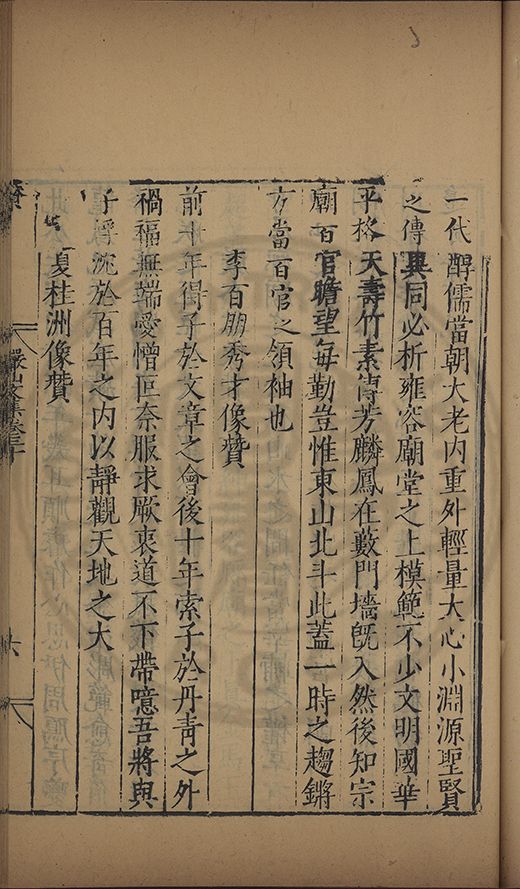 一代醇儒當朝大老內重外輕量大心小淵源聖賢
之傳異同必析雍容廟堂之上模範不少文明國華
平格天壽竹素傳芳麟鳳在藪門墻旣入然後知宗
廟百官瞻望每勤豈惟東山北斗此蓋一時之趨鏘
方當百官之領袖也
李百朋秀才像贊
前十年得子於文章之會後十年索子於丹青之外
禍福無端愛憎叵奈服求厥衷道不下帶噫吾將與
子浮沈於百年之內以靜觀天地之大
夏桂洲像贊